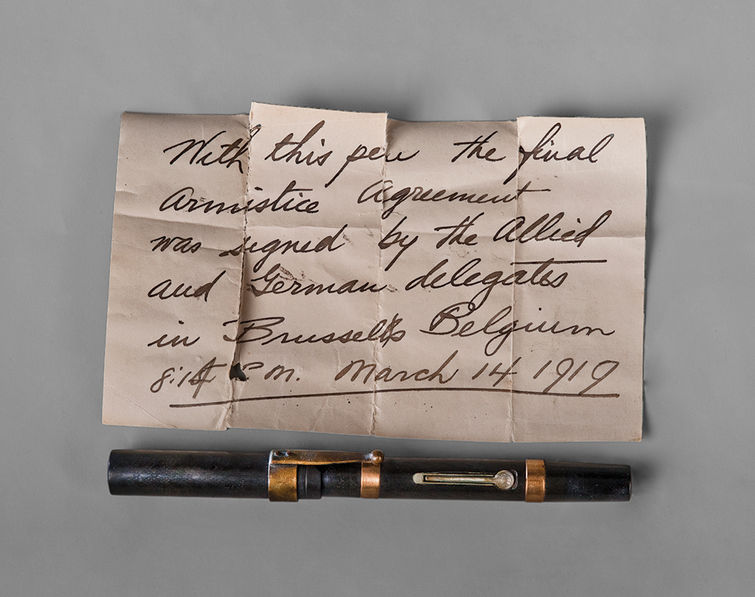 With this pen the final
Armistice Agreement
was signed by the Allied
and German delegates
in Brussells Belgium
P.M. March 14 1919